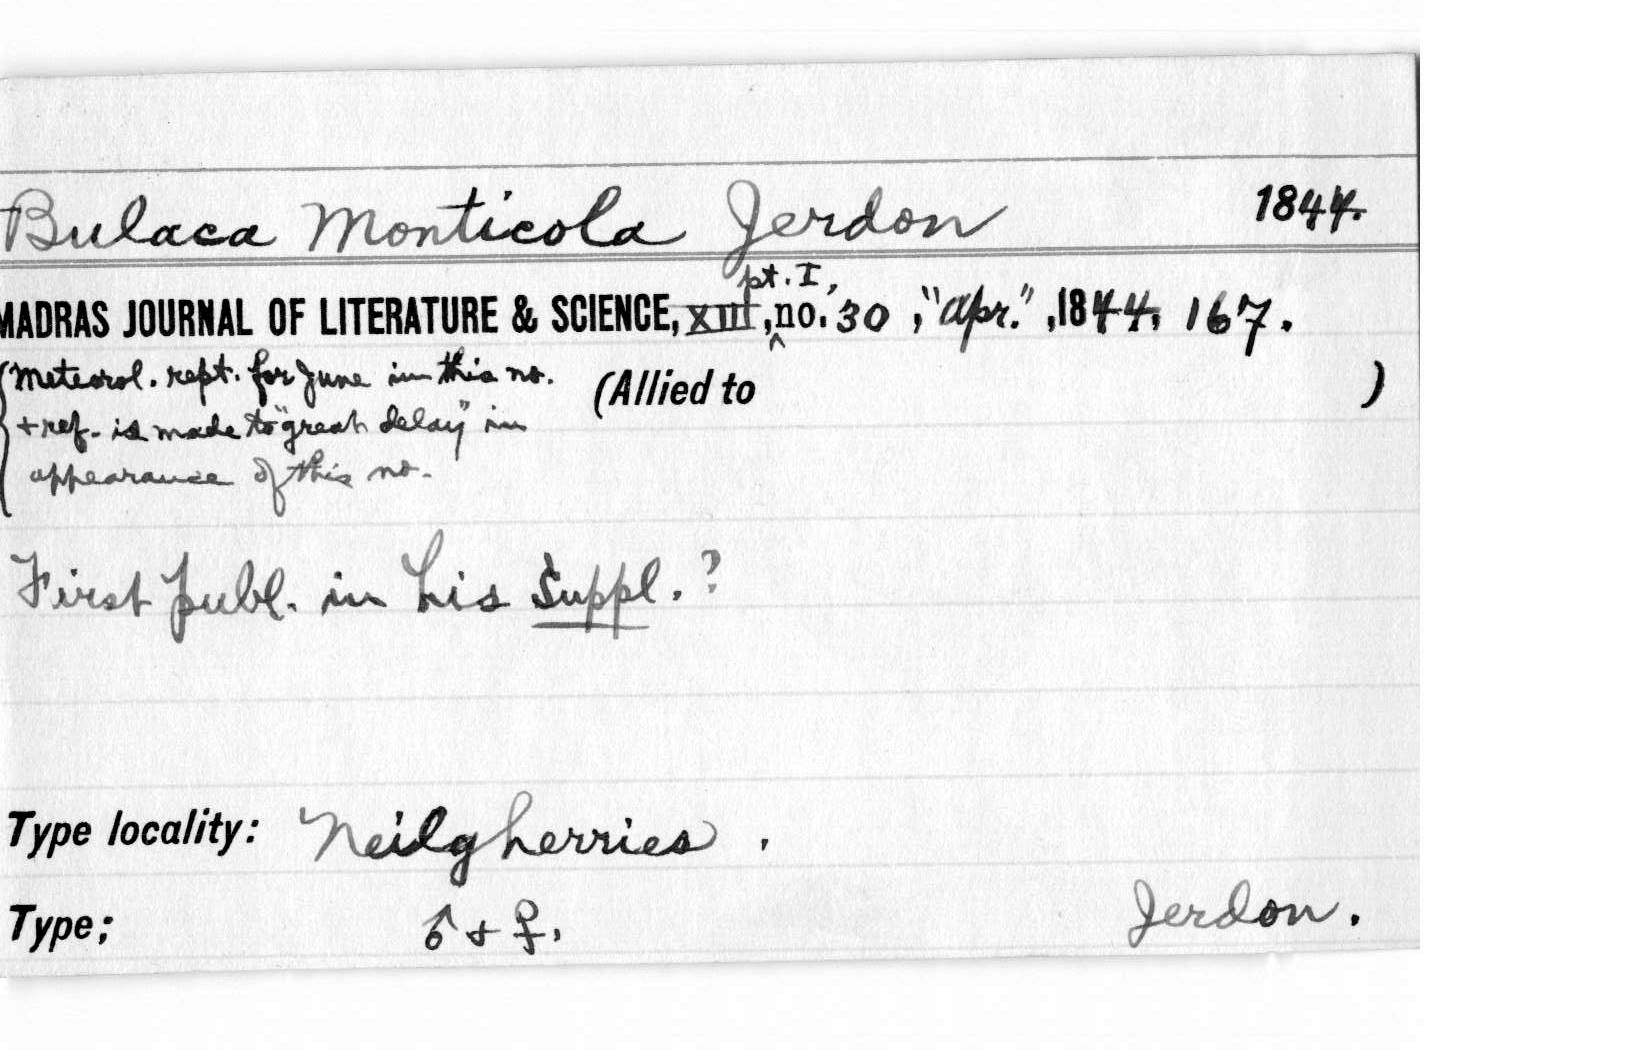 Bulaca Monticola Jerdon 1844.
pt. I,
MADRAS JOURNAL OF LITERATURE & SCIENCE, XIII, no. 30, "Apr.", 1844, 167.
(Meteorol. rept. for June in this no. (Allied to )
+ ref. is made to "great delay" in
appearance of this no.
First publ. in his Suppl.?
Type locality: Neilgherries.
Type; ♂ + ♀. Jerdon.